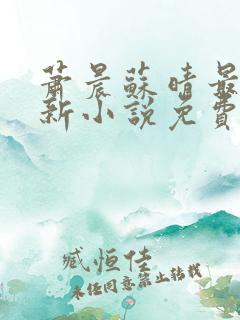 蕭晨蘇晴最
新小說免費
臧恒佳
未任同意禁止转载